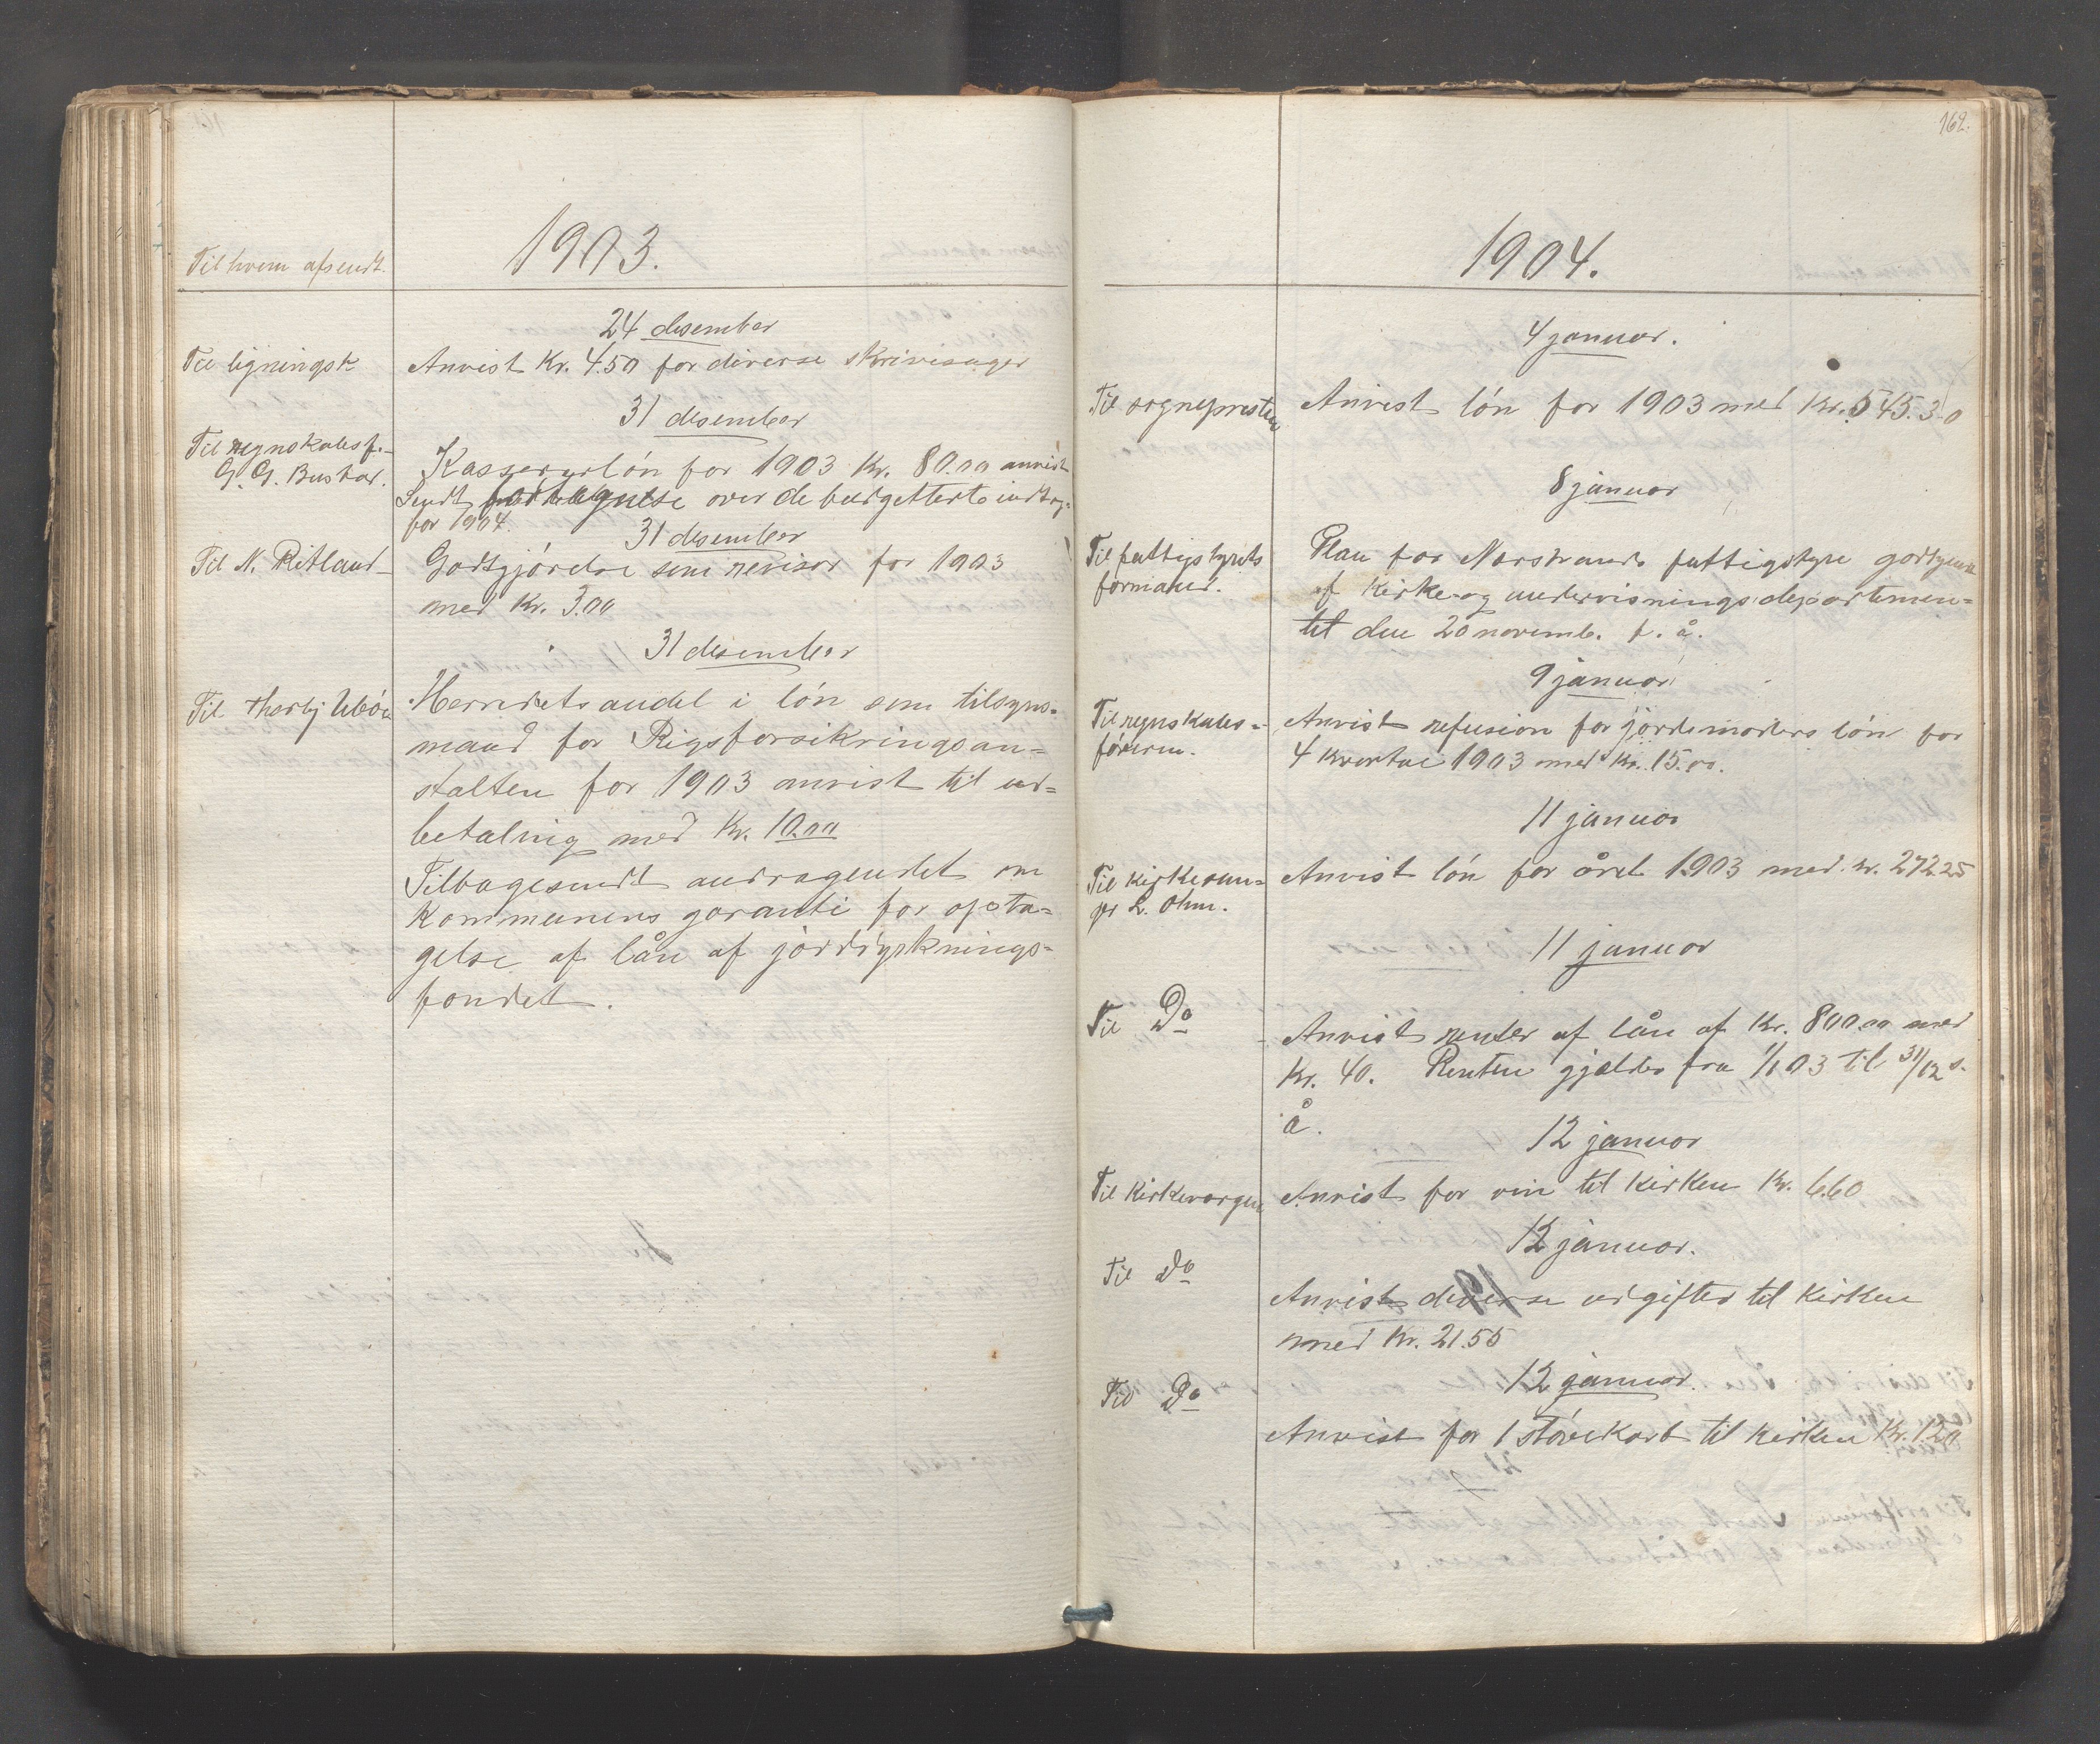 Til hvem afsendt.
1903.
24 desember
Til ligningsk.
Anvist Kr. 4.50 for diverse skrivesager
31 desember
Til regnskabsf.
G. G. Bushar.
Kasserer løn for 1903 Kr. 80.00 anvist
Sendt fortegnelse over de budgetterte indtæg-
for 1904.
31 desember
Til N. Ritland
Godtgjørelse som revisor for 1903
med Kr. 3.00
31 desember
Til Thorbj
Herredets andel i løn som tilsyns=
mand for Rigsforsikringsan=
stalten for 1903 anvist til ud=
betaling med Kr. 10.00
Tilbagesendt andragendet om
Kommunens garanti for opta=
gelse af lån af jorddyrknings=
fondet.
162.
1904.
4 januar.
Til sognepresten
Anvist løn for 1903 med Kr. 545.30
8 januar
Til fattigstyrets
formand.
Plan for Nærstrands fattigstyre godkjendt
af Kirke- og undervisningsdepartemen=
tet den 20 novemb. f. å.
9 januar
Til regnskabs=
føreren.
Anvist refusion for jordemoders løn for
4 kvartal 1903 med Kr. 15.00.
11 januar
Til kirkesan=
ger L. Ohm.
Anvist løn for året 1903 med kr. 272.25
11 januar
Til Do
Anvist renter af lån af Kr. 800.00 med
Kr. 40. Renten gjælder fra 1/1 03 til 31/12 s.
å.
12 januar
Til Kirkevergen
Anvist for vin til Kirken Kr. 6.60
12 januar.
Til do
Anvist diverse udgifter til Kirken
med Kr. 21.55
12 januar.
Til Do
Anvist for 1 støvekost til kirken Kr. 1.20